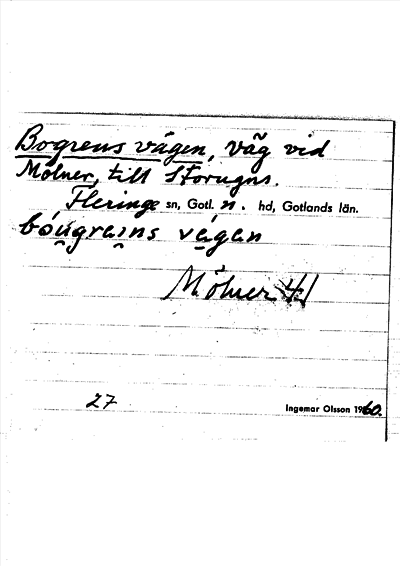 Bogrens vägen, väg vid
Mölner, till Storugns.
Fleringe sn, Gotl. n. hd, Gotlands län.
bóu̯grai̯ns vägan
Mölner 4:1
27
Ingemar Olsson 1960.